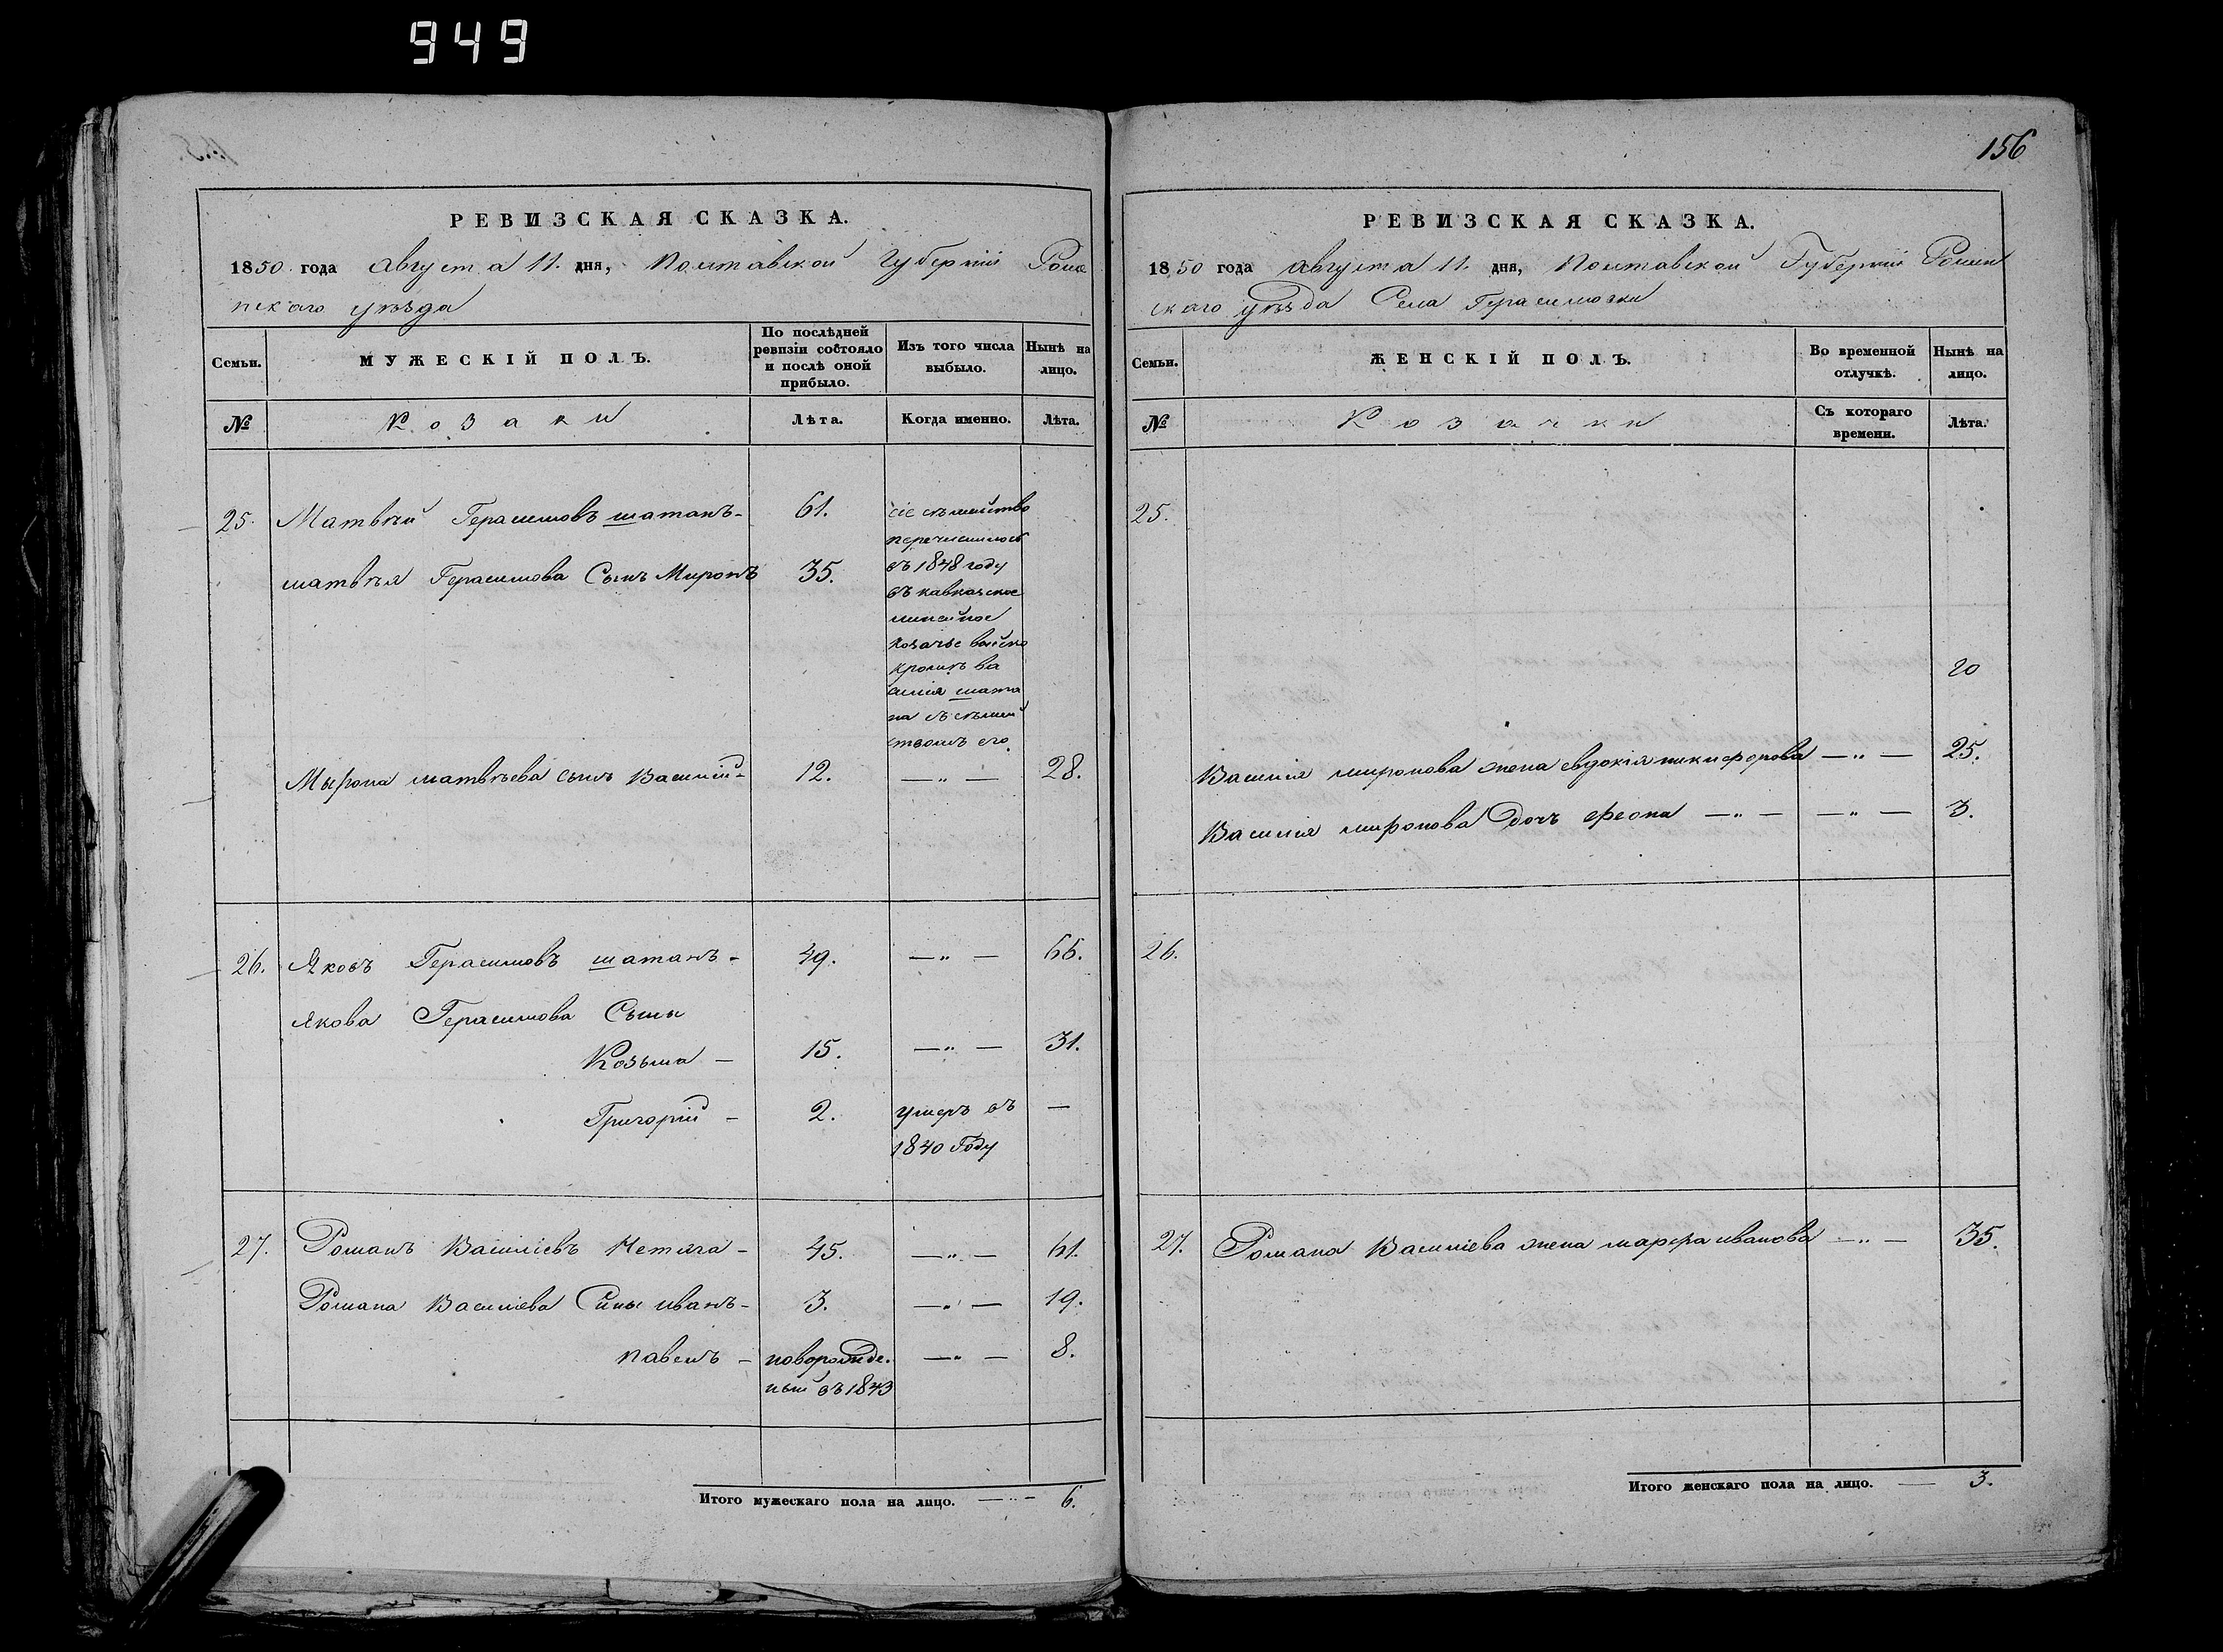 949
156
РЕВИЗСКАЯ СКАЗКА.
1850 года августа 11. дня, Полтавской Губерніи Роме
нскаго уѣзда
Семьи.
МУЖЕСКІЙ ПОЛЪ.
По послѣдней
ревизіи состояло
и послѣ оной
прибыло.
Изъ того числа
выбыло.
Нынѣ на
лицо.
№
Козаки
Лѣта.
Когда именно.
Лѣта.
25. Матвѣй Герасимовъ шатанъ- 61.
матвѣя Герасимова Сынъ Миронъ 35.
сіе сѣмейство
перечислилось
въ 1848 году
въ кавказское
линейное
козачье войско
кромѣ ва
силія шата
на съ сѣмей
ствомъ его.
Мырона матвѣева сынъ Василій- 12. — „ — 28.
26. Яковъ Герасимовъ шатанъ- 49. — „ — 66.
Якова Герасимова Сыны
Козьма — 15. — „ — 31.
Григорій — 2. умеръ въ —
1840 Году
27. Романъ Василіевъ Нетяга- 45. — „ — 61.
Романа Василіева Сины иванъ- 3. — „ — 19.
павелъ — новорожде. — „ — 8.
ный въ 1843
Итого мужескаго пола на лицо. — „ — 6.
РЕВИЗСКАЯ СКАЗКА.
1850 года августа 11. дня, Полтавской Губерніи Ромен
скаго уѣзда Села Герасимовки
Семьи.
ЖЕНСКІЙ ПОЛЪ.
Во временной
отлучкѣ.
Нынѣ на
лицо.
№
Козачки
Съ котораго
времени.
Лѣта.
25.
20
Василія миронова жена евдокія никифорова — „ — 25.
Василія миронова Дочь феона — „ — — „ — 3.
26.
27. Романа Василіева жена марфа иванова — „ — 35.
Итого женскаго пола на лицо. — 3.